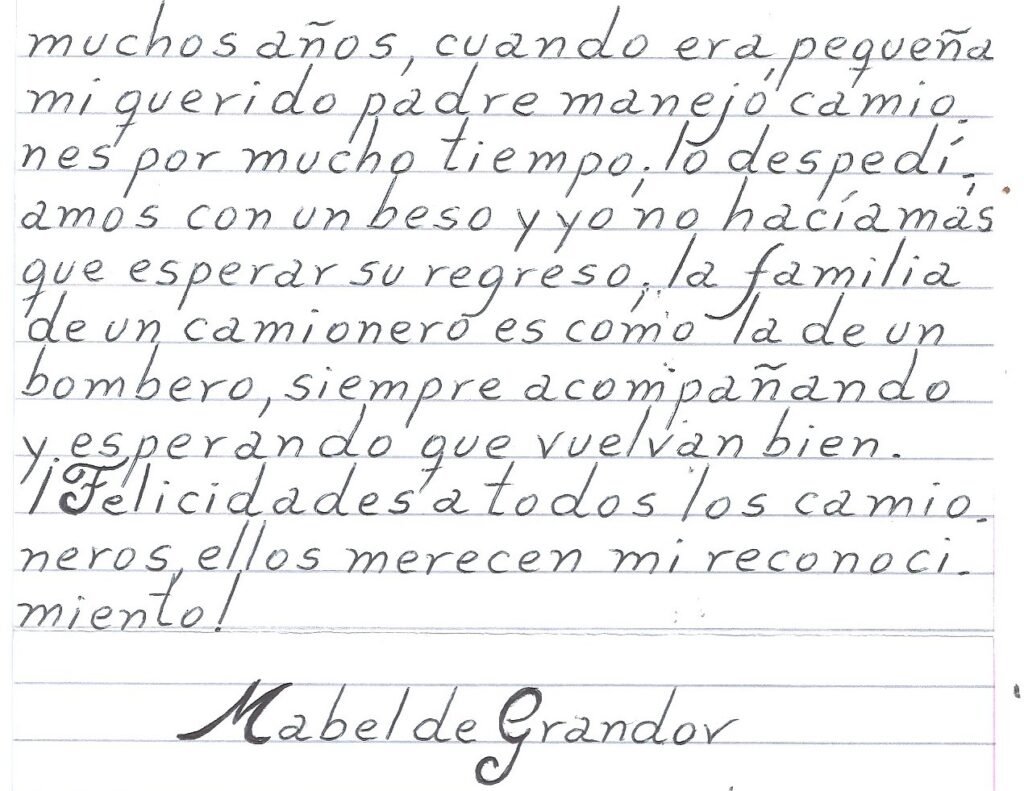 muchos años, cuando era pequeña
mi querido padre manejó camio-
nes por mucho tiempo; lo despedí-
amos con un beso y yo no hacía más
que esperar su regreso; la familia
de un camionero es como la de un
bombero, siempre acompañando
y esperando que vuelvan bien.
¡Felicidades a todos los camio-
neros, ellos merecen mi reconoci-
miento!
Mabel de Grandov